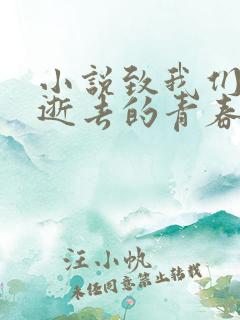 小说致我们
逝去的青春
汪小帆
未经同意禁止转载